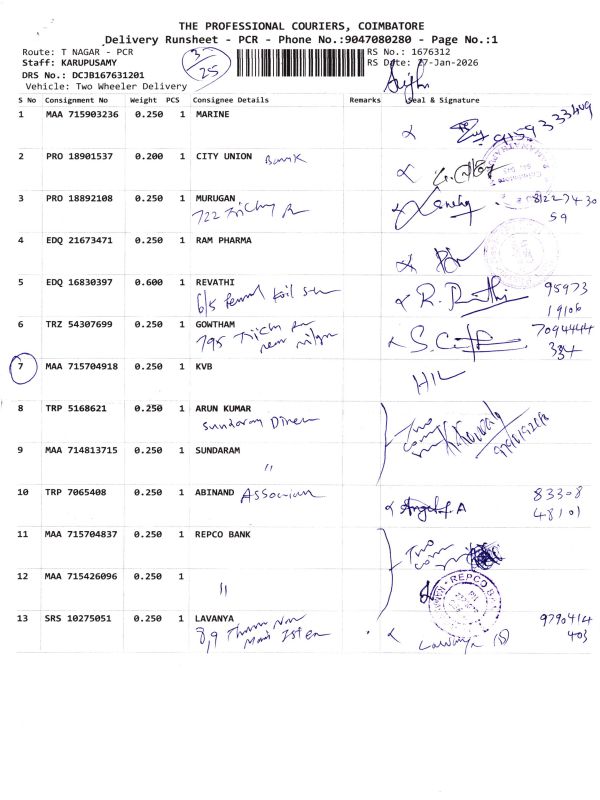 THE PROFESSIONAL COURIERS, COIMBATORE
Delivery Runsheet - PCR - Phone No.:9047080280 - Page No.:1
Route: T NAGAR - PCR
RS No.: 1676312
Staff: KARUPUSAMY
RS Date: 27-Jan-2026
DRS No.: DCJB167631201
Vehicle: Two Wheeler Delivery
25
S No Consignment No Weight PCS Consignee Details Remarks Seal & Signature
1 MAA 715903236 0.250 1 MARINE
2 PRO 18901537 0.200 1 CITY UNION Bank
3 PRO 18892108 0.250 1 MURUGAN
722 Trichy
59
4 EDQ 21673471 0.250 1 RAM PHARMA
5 EDQ 16830397 0.600 1 REVATHI 95973
6/5 19106
6 TRZ 54307699 0.250 1 GOWTHAM 7094444
795 Trichy 334
7 MAA 715704918 0.250 1 KVB
HIL
8 TRP 5168621 0.250 1 ARUN KUMAR
Sundaram
Two
9 MAA 714813715 0.250 1 SUNDARAM
"
10 TRP 7065408 0.250 1 ABINAND 83308
Angel.A 48101
11 MAA 715704837 0.250 1 REPCO BANK
Two
12 MAA 715426096 0.250 1
"
REPCO
13 SRS 10275051 0.250 1 LAVANYA 9790414
8,9 403
Lavanya